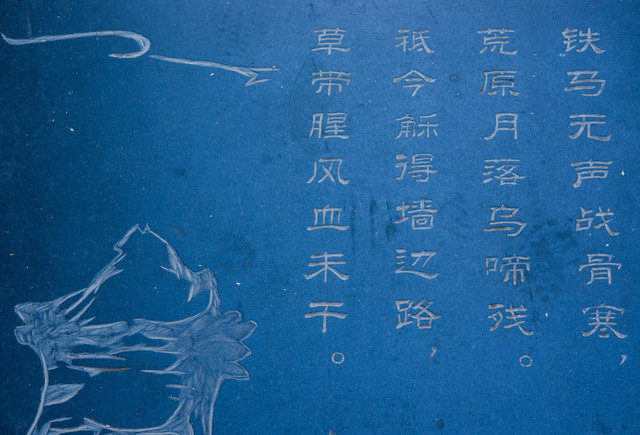 铁马无声战骨寒，
荒原月落乌啼残。
祗今稣得墙边路，
草带腥风血未干。